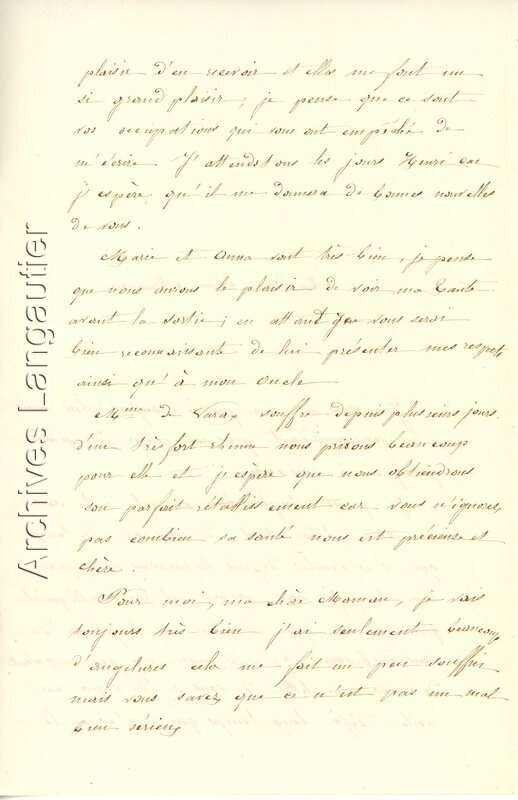 plaisir d'en recevoir et elles me font un
si grand plaisir ; je pense que ce sont
vos occupations qui vous ont empêché de
m'écrire J'attends tous les jours Henri car
j'espère qu'il me donnera de bonnes nouvelles
de vous.
Marie et Anna vont très bien, je pense
que nous aurons le plaisir de voir ma tante
avant la sortie ; en attendt je vous serai
bien reconnaissante de lui présenter mes respects
ainsi qu'à mon oncle
Mme de Varax souffre depuis plusieurs jours
d'un très fort rhume nous prions beaucoup
pour elle et j'espère que nous obtiendrons
son parfait rétablissement car vous n'ignorez
pas combien sa santé nous est précieuse et
chère.
Pour moi, ma chère Maman, je vais
toujours très bien j'ai seulement beaucoup
d'angelures cela me fait un peu souffrir
mais vous savez que ce n'est pas un mal
bien sérieux
Archives Langautier